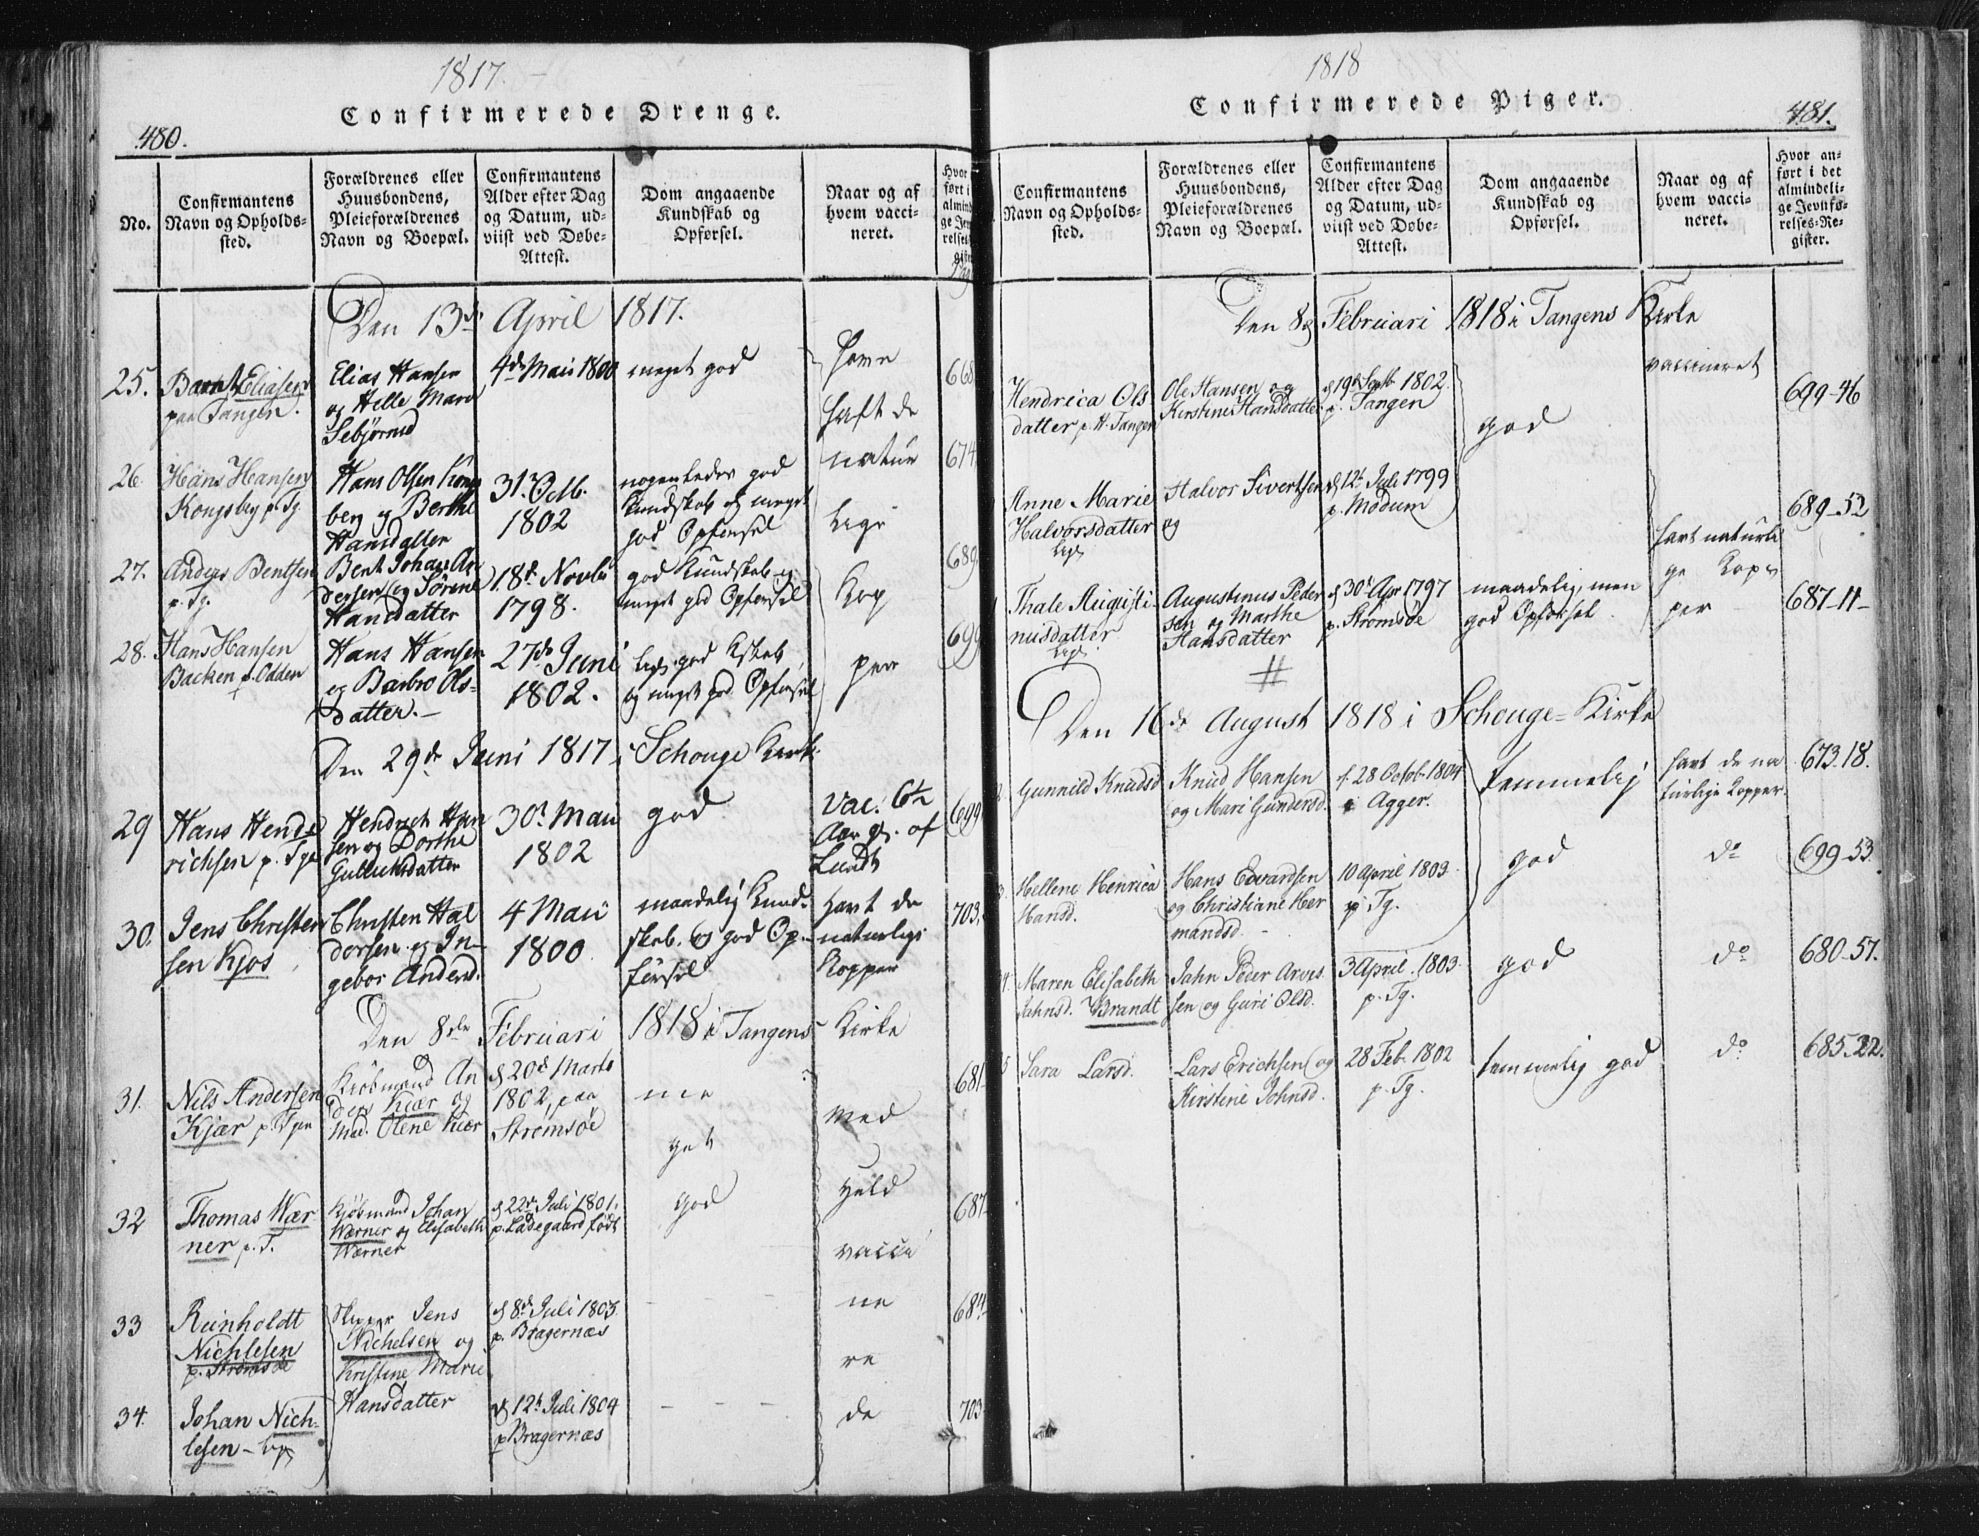 1817.
Confirmerede Drenge.
480.
No.
Confirmantens
Navn og Opholds-
sted.
Forældrenes eller
Huusbondens,
Pleieforældrenes
Navn og Boepæl.
Confirmantens
Alder efter Dag
og Datum, ud-
viist ved Døbe-
Attest.
Dom angaaende
Kundskab og
Opførsel.
Naar og af
hvem vacci-
neret.
Hvor
ført i
almind
ge Jev
relses
Den 13de April 1817.
25.
Barnt Eliasen
paa Tangen.
Elias Hansen
og Helle Marie
4de Maii 1800
meget god
668
26.
Hans Hansen
Kongsberg p. Tg.
Hans Olsen Kongs
berg og Berthe
Hansdatter
31. Octb.
1802
nogenledes god
Kundskab og meget
god Opførsel
674
27.
Anders Bentsen
p. Tg.
Bent Johan An
dersen og Sørene
Hansdatter
18de Novbr
1798.
god Kundskab og
meget god Opførsel
689
28.
Hans Hansen
Backen p. Odden
Hans Hansen
og Barbro Ols-
datter.
27de Juni
1802.
lige god Kskab
og meget god Opførsel
699
have
haft de
natur
lige
Kop
per
Den 29de Juni 1817 i Schouge Kirke
29
Hans Hend-
richsen p. Tgn
Hendrich Han
sen og Dorthe
Gulliksdatter
30. Maii
1802
god
Vac. 6te
Aar gl. af
Lundt
699
30.
Jens Christen
sen Kjos
Christen Hal
dorsen og In-
gebor Andersd.
4 Maii
1800
maadelig Kund-
skab og god Op-
førsel
Havt de
naturlige
Kopper
703
Den 8de Februari 1818 i Tangens Kirke
31.
Nils Andersen
Kjær p. Tgn
Kiøbmand An
ders Kiær og
Mad. Olene Kiær
d 20de Marts
1802, paa
Strømsøe
me
get
god
Med
Held
vacci
ne
re
de
681
32
Thomas Wær-
ner p. T.
Kjøbmand Johan
Wærner og Elisabeth
Wærner
d 22de Juli 1801.
p. Ladegaard født
687
33
Reinholdt
Nichlesen
p. Strømsøe
Skipper Jens
Nichelsen og
Kristine Marie
Hansdatter
d 8de Juli 1803.
p. Bragernæs
684
34.
Johan Nich-
lesen - lige
d 12te Juli 1804
p Bragernæs
703
1818
Confirmerede Piger.
481.
Confirmantens
Navn og Opholds-
sted.
Forældrenes eller
Huusbondens,
Pleieforældrenes
Navn og Boepæl.
Confirmantens
Alder efter Dag
og Datum, ud-
viist ved Døbe-
Attest.
Dom angaaende
Kundskab og
Opførsel.
Naar og af
hvem vacci-
neret.
Hvor an-
ført i det
almindeli-
ge Jevnfø-
relses-Re-
gister.
Den 8de Februari 1818 i Tangens Kirke
Hendrica Ols
datter p. H. Tangen
Ole Hansen og
Kirstine Hansdatter
d 19de Septb 1802.
p. Tangen
god
vaccineret
699-46
Anne Marie
Halvorsdatter
lige
Halvor Sivertsen
og
d 12te Juli 1799
p. Modum
689-52
Thale Augusti-
nusdatter
lige
Augustinus Peder
sen og Marthe
Hansdatter
d 30te Apr 1797
p. Strømsøe
maadelig, men
god Opførsel.
havt naturli
ge Kop
per
687-11-
#
Den 16de August 1818 i Schouge-Kirke
Gunnild Knudsd
Knud Hansen
og Mari Gundersd.
f. 28 Octob. 1804
i Agger.
temmelig
god
havt de na
turlige Kopper.
673.18.
Hellene Henrica
Hansd.
Hans Edvardsen
og Christiane Her
mandsd.
10 April 1803.
p Tg.
do
699-53.
Maren Elisabeth
Jahnsd. Brandt
Jahn Peder Arves
sen og Guri Olsd.
3 April. 1803.
p. Tg.
god
do
680-57.
Sara Larsd.
Lars Erichsen og
Kirstine Johnsd.
28 Feb. 1802
p. Tg.
temmelig god
do
685.22.